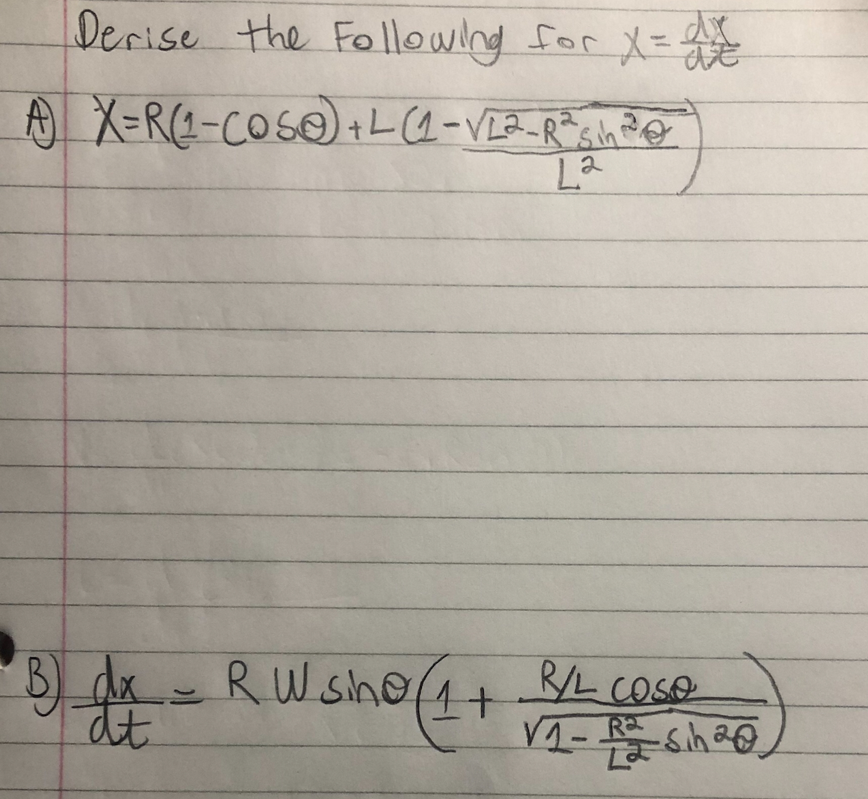 Derise the Following for X = dx/dt
A) X=R(1-COSθ)+L(1-√L²-R²sin²θ/L²)
B) dx/dt = R W sinθ(1 + R/L cosθ/√1-R²/L² sin²θ)